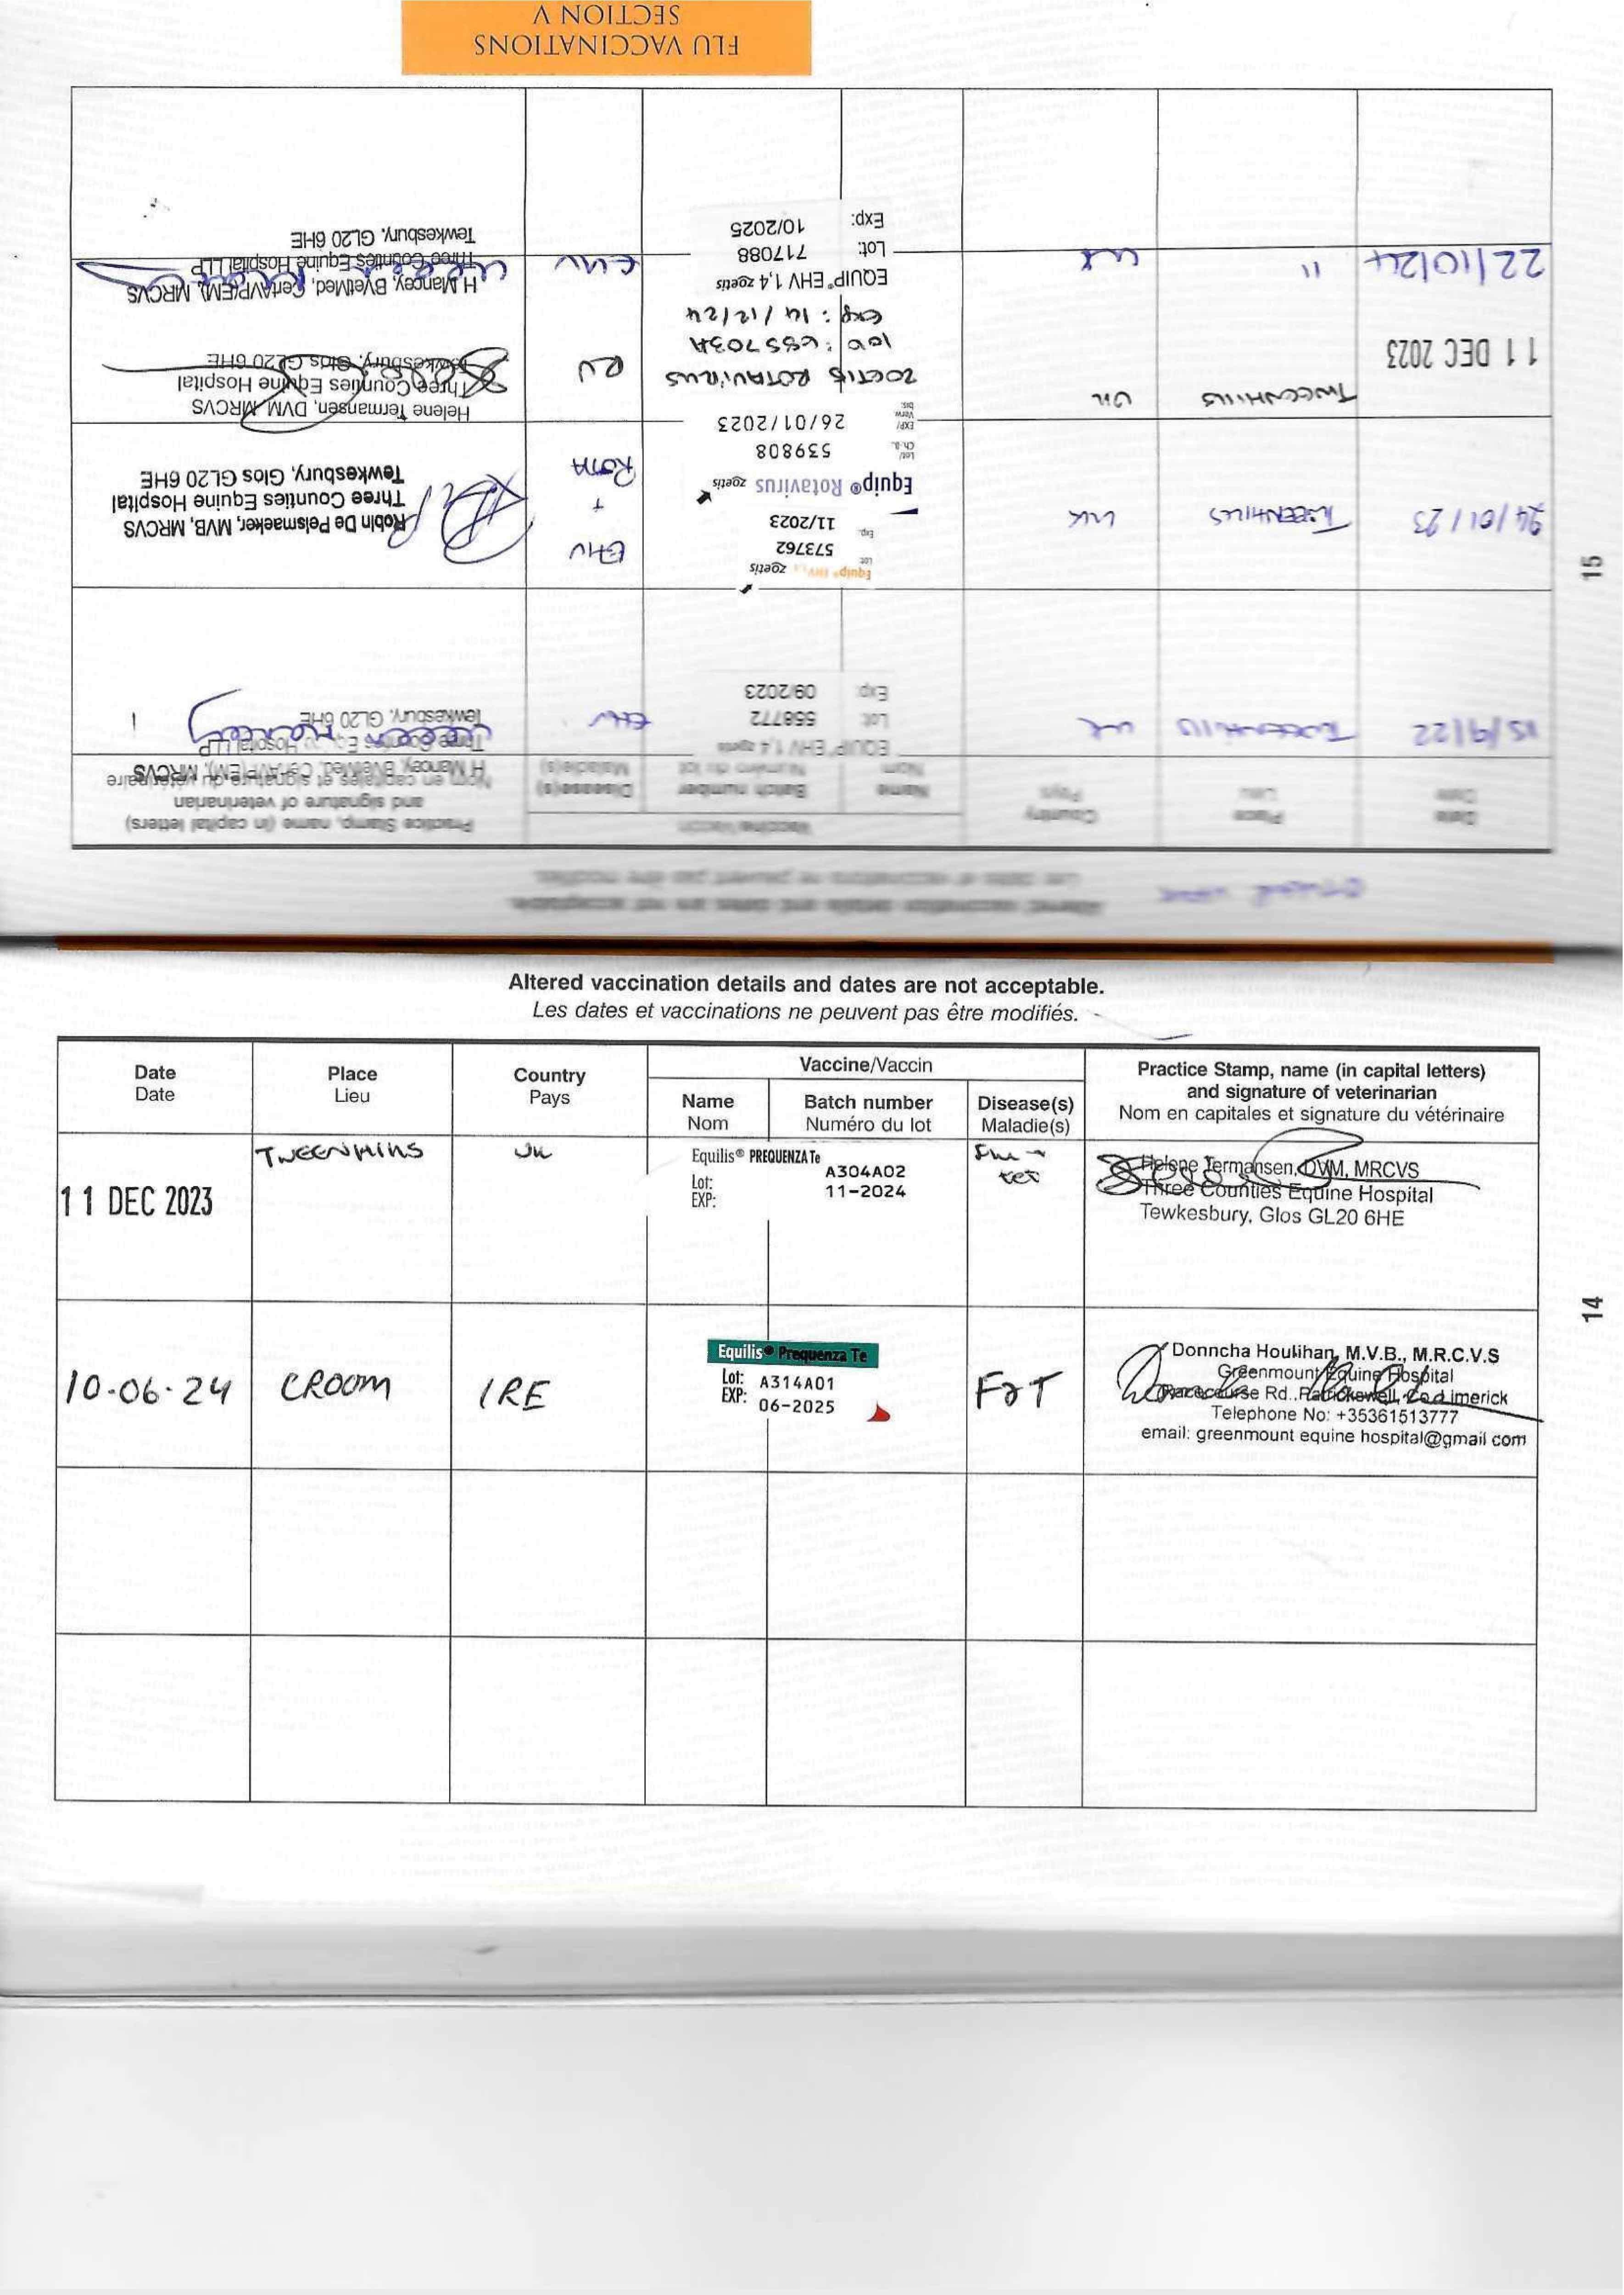 FLU VACCINATIONS
SECTION V
Altered vaccination details and dates are not acceptable.
Les dates et vaccinations ne peuvent pas être modifiés.
Date
Date
Place
Lieu
Country
Pays
Vaccine/Vaccin
Name
Nom
Batch number
Numéro du lot
Disease(s)
Maladie(s)
Practice Stamp, name (in capital letters)
and signature of veterinarian
Nom en capitales et signature du vétérinaire
15/9/22
TWEENHILLS
UK
EQUIP® EHV 1,4 zoetis
Lot: 558772
Exp: 09/2023
EHV
H Mancey, BVetMed, CertAVP(EM), MRCVS
Three Counties Equine Hospital LLP
Tewkesbury, GL20 6HE
24/01/23
TWEENHILLS
UK
Equip® EHV1,4 zoetis
Lot 573762
Exp. 11/2023
Equip® Rotavirus zoetis
Lot/ Ch.-B. 539808
EXP/ Verw. bis: 26/01/2023
EHV
+
ROTA
Robin De Pelsmaeker, MVB, MRCVS
Three Counties Equine Hospital
Tewkesbury, Glos GL20 6HE
11 DEC 2023
TWEENHILLS
UK
ZOETIS ROTAVIRUS
Exp: 14/12/24
RV
Helene Termansen, DVM, MRCVS
Three Counties Equine Hospital
Tewkesbury, Glos GL20 6HE
22/10/24
"
UK
EQUIP® EHV 1,4 zoetis
Lot: 717088
Exp: 10/2025
EHV
H Mancey, BVetMed, CertAVP(EM), MRCVS
Three Counties Equine Hospital LLP
Tewkesbury, GL20 6HE
15
Altered vaccination details and dates are not acceptable.
Les dates et vaccinations ne peuvent pas être modifiés.
Date
Date
Place
Lieu
Country
Pays
Vaccine/Vaccin
Name
Nom
Batch number
Numéro du lot
Disease(s)
Maladie(s)
Practice Stamp, name (in capital letters)
and signature of veterinarian
Nom en capitales et signature du vétérinaire
11 DEC 2023
TWEENHILLS
UK
Equilis® PREQUENZA Te
Lot: A304A02
EXP: 11-2024
Flu +
tet
Helene Termansen, DVM, MRCVS
Three Counties Equine Hospital
Tewkesbury, Glos GL20 6HE
10-06-24
CROOM
IRE
Equilis® Prequenza Te
Lot: A314A01
EXP: 06-2025
F+T
Donncha Houlihan, M.V.B., M.R.C.V.S
Greenmount Equine Hospital
Racecourse Rd., Patrickswell, Co. Limerick
Telephone No: +35361513777
email: greenmount equine hospital@gmail com
14